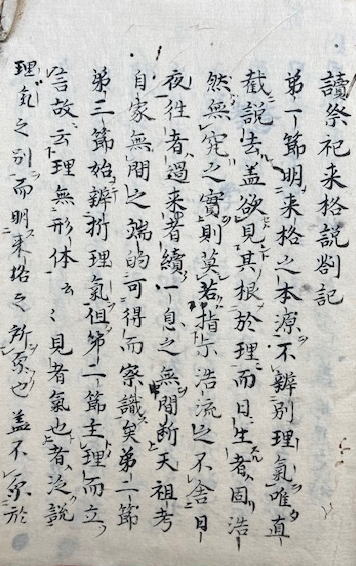 讀祭祀来格説劄記
第一節明来格之本源不辨別理氣唯直
截説去盖欲見其根於理而日生者固浩
然無窮之實則莫若指示浩流之不舍日
夜徃者過来者續一息之無間断天祖考
自家無間之端的可得而察識矣第二節
第三節始辨析理氣但第二節主理而立
言故云理無形体云々見者氣也者泛説
理氣之別而明来格之所原也盖不原於